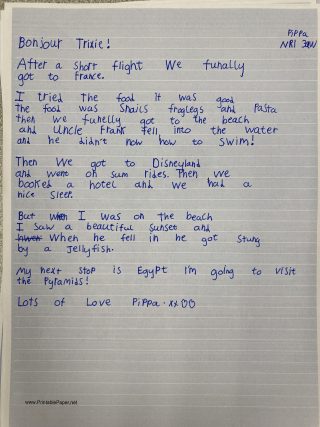 Pippa
NR1 3BW
Bonjour Trixie!
After a short flight we funally
got to france.
I tried the food it was good
the food was snails froglegs and Pasta
then we funelly got to the beach
and Uncle Frank fell into the water
and he didn't now how to swim!
Then we got to Disneyland
and went on sum rides. Then we
booked a hotel and we had a
nice sleep.
But when I was on the beach
I saw a beautiful sunset and
When he fell in he got stung
by a Jellyfish.
My next stop is Egypt I'm going to visit
the Pyramids!
Lots of Love Pippa. xx
www.PrintablePaper.net